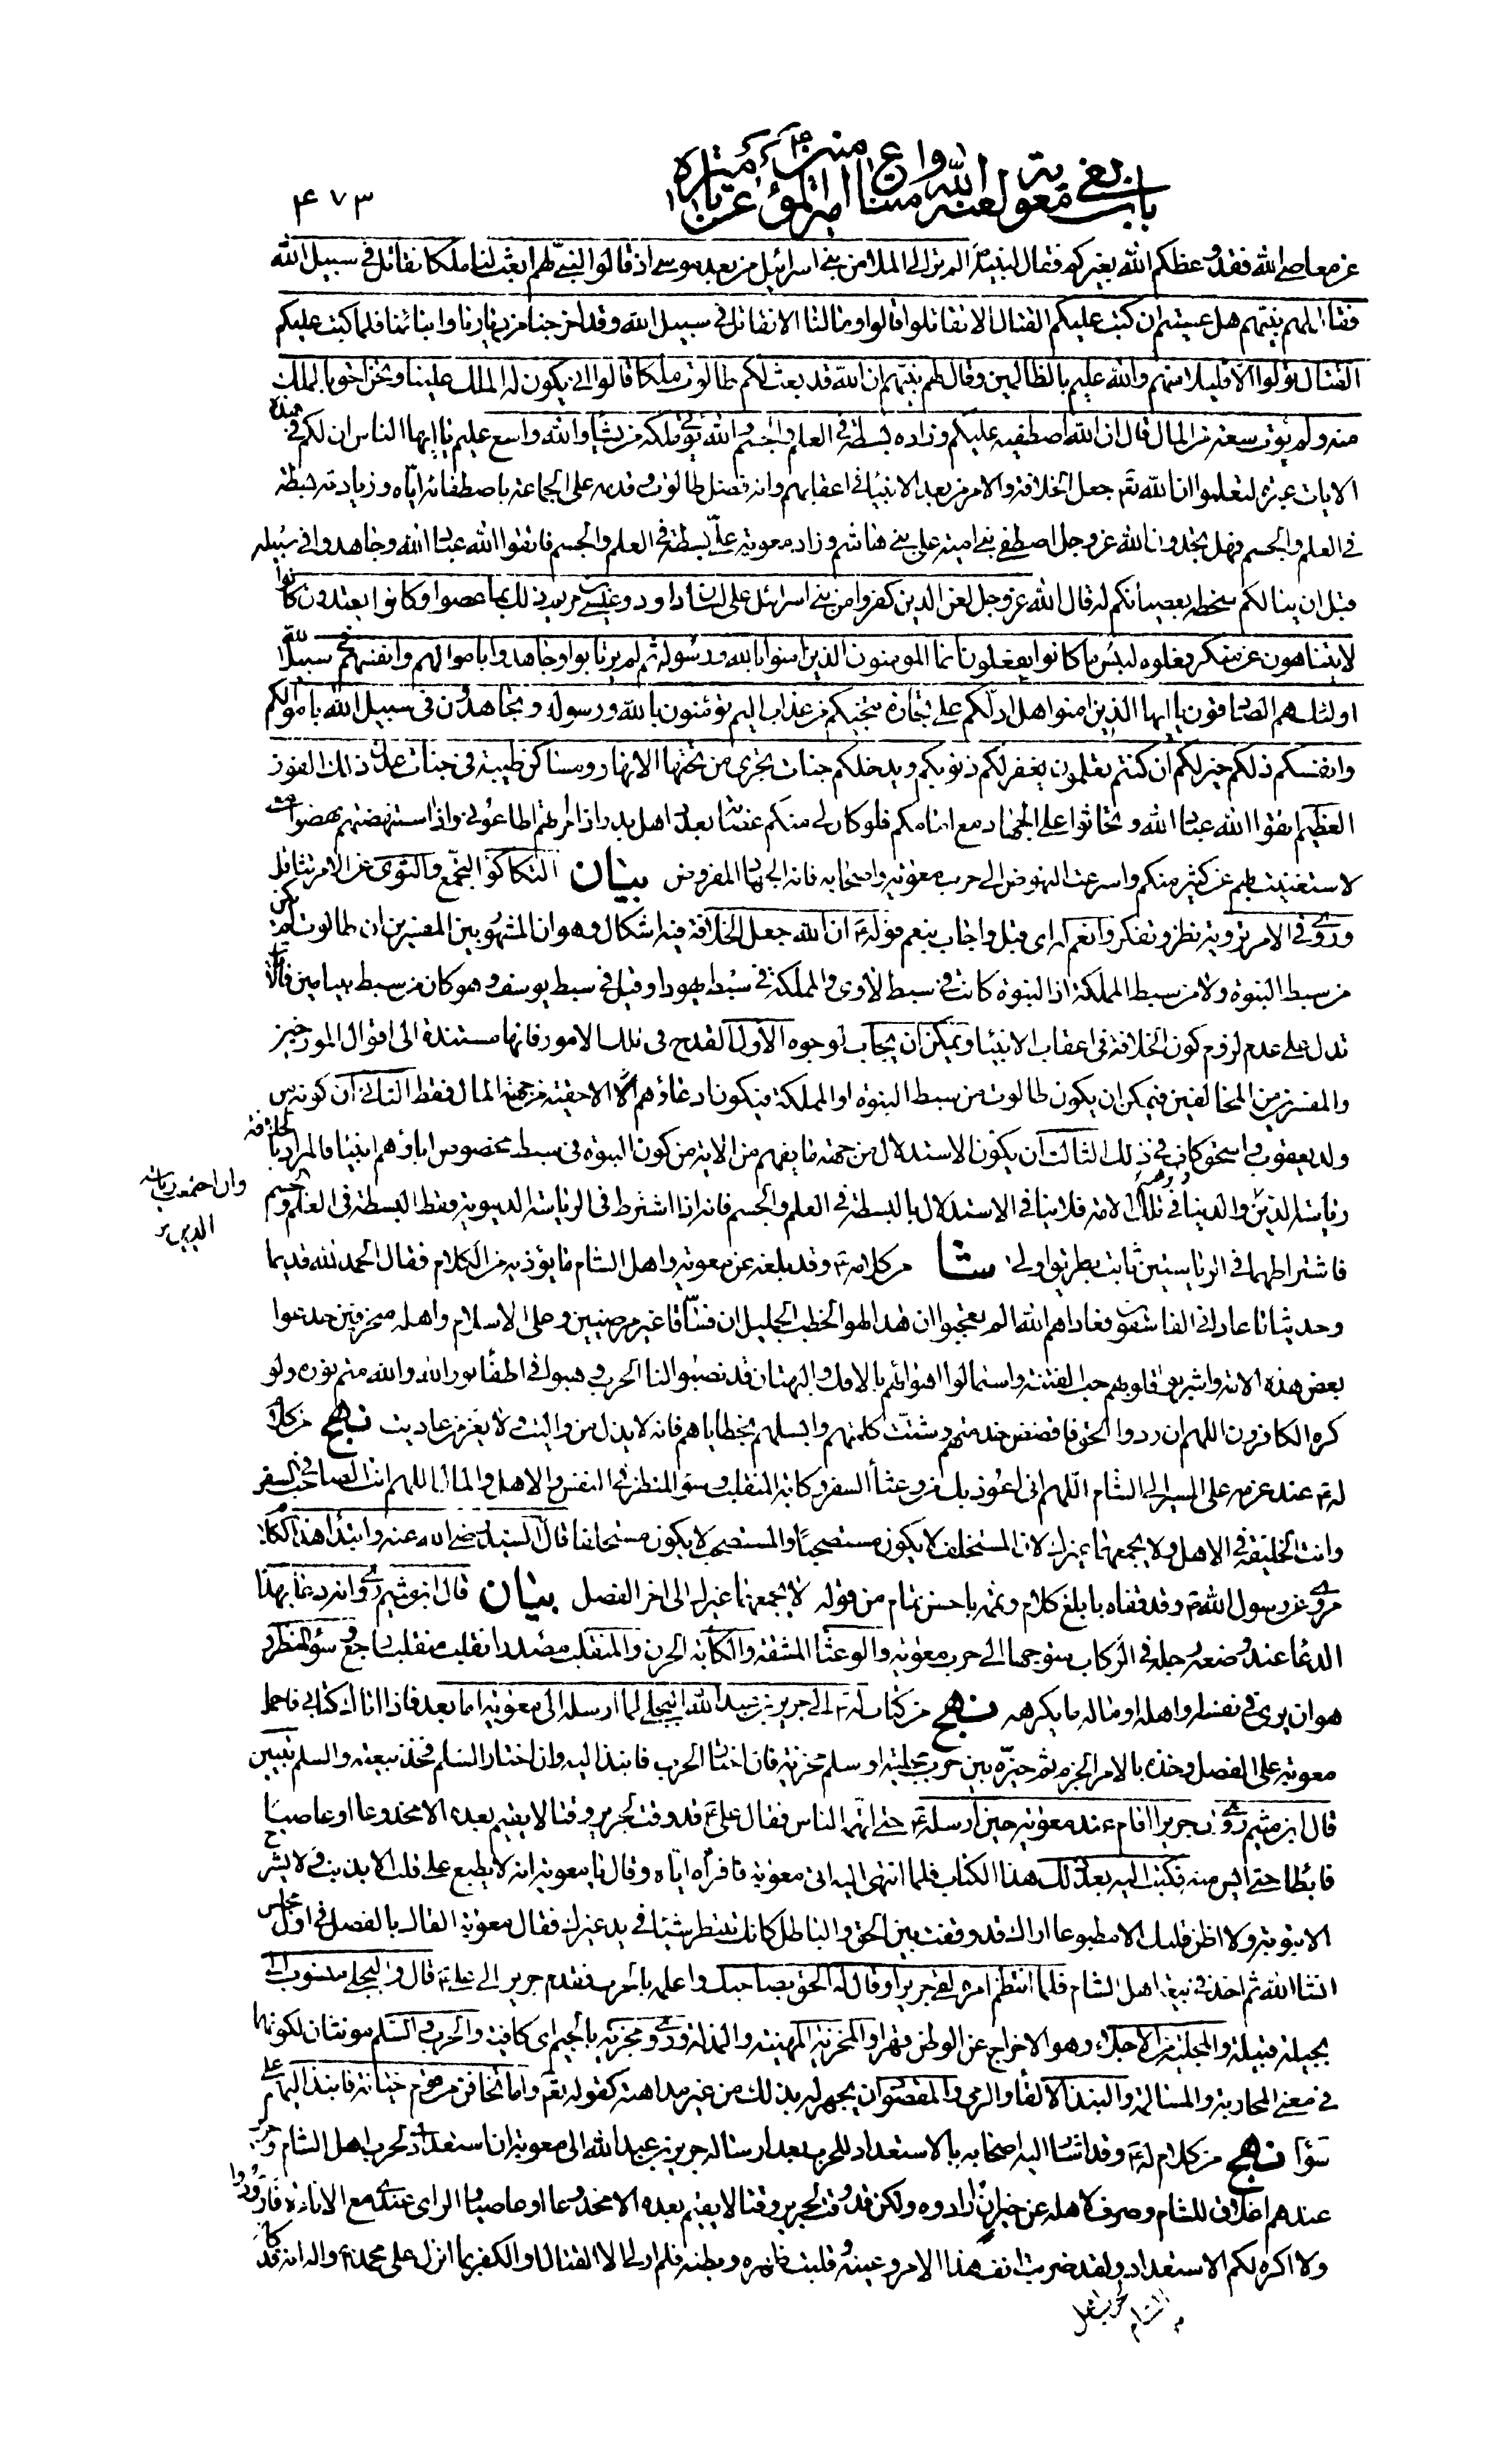 باب بغي معوية لعنه الله وامتناع امير المؤمنين عن تأميره
٤٧٣
عن معاصي الله فقد وعظكم الله بغيركم فقال لنبيه الم تر الى الملا من بني اسرائيل من بعد موسى اذ قالوا لنبي لهم ابعث لنا ملكا نقاتل في سبيل الله
فقال لهم نبيهم هل عسيتم ان كتب عليكم القتال الا تقاتلوا قالوا وما لنا الا نقاتل في سبيل الله وقد اخرجنا من ديارنا وابنائنا فلما كتب عليكم
القتال تولوا الا قليلا منهم والله عليم بالظالمين وقال لهم نبيهم ان الله قد بعث لكم طالوت ملكا قالوا انى يكون له الملك علينا ونحن احق بالملك
منه ولم يؤت سعة من المال قال ان الله اصطفيه عليكم وزاده بسطة في العلم والجسم والله يؤتي ملكه من يشاء والله واسع عليم يا ايها الناس ان لكم في هذه
الايات عبرة لتعلموا ان الله تعم جعل الخلافة والامر من بعد الانبياء في اعقابهم وانه فضل طالوت وقدمه على الجماعة باصطفائه اياه وزيادته بسطة
في العلم والجسم فهل تجدون الله عز وجل اصطفى بني امية على بني هاشم وزاد معوية علي بسطة في العلم والجسم فاتقوا الله عباد الله وجاهدوا في سبيله
قبل ان ينالكم سخطه بعصيانكم له قال الله عز وجل لعن الذين كفروا من بني اسرائيل على لسان داود وعيسى بن مريم ذلك بما عصوا وكانوا يعتدون كانوا
لا يتناهون عن منكر فعلوه لبئس ما كانوا يفعلون انما المومنون الذين امنوا بالله ورسوله ثم لم يرتابوا وجاهدوا باموالهم وانفسهم في سبيل الله
اولئك هم الصادقون يا ايها الذين امنوا هل ادلكم على تجارة تنجيكم من عذاب اليم تؤمنون بالله ورسوله وتجاهدون في سبيل الله باموالكم
وانفسكم ذلكم خير لكم ان كنتم تعلمون يغفر لكم ذنوبكم ويدخلكم جنات تجري من تحتها الانهار ومساكن طيبة في جنات عدن ذلك الفوز
العظيم اتقوا الله عباد الله وتحاثوا على الجهاد مع امامكم فلو كان لي منكم عصابة بعدد اهل بدر اذا امرتهم اطاعوني واذا استنهضتهم نهضوا معي
لاستغنيت بهم عن كثير منكم واسرعت النهوض الى حرب معوية واصحابه فانه الجهاد المفروض بيان التكاكؤ التجمع والتوى عن الامر تثاقل
وروى في الامر تروية نظر وتفكر وانعم له اي قبل واجاب بنعم قوله ع ان الله جعل الخلافة فيه اشكال وهو ان المشهور بين المفسرين ان طالوت لم يكن
من سبط النبوة ولا من سبط المملكة اذ النبوة كانت في سبط لاوى والمملكة في سبط يهودا وقيل في سبط يوسف وهو كان من سبط بنيامين فالآية
تدل على عدم لزوم كون الخلافة في اعقاب الانبياء ويمكن ان يجاب بوجوه الاول القدح في تلك الامور فانها مستندة الى اقوال المورخين
والمفسرين من المخالفين فيمكن ان يكون طالوت من سبط النبوة او المملكة فيكون ادعاؤهم الاحقية من جهة المال فقط الثاني ان كونه من
ولد يعقوب واسحق كاف في ذلك الثالث ان يكون الاستدلال من جهة ما يفهم من الاية من كون النبوة في سبط مخصوص اباؤهم انبياء فالمراد بالخلافة
رئاسة الدين والدنيا في تلك الامة فلا ينافي الاستدلال بالبسطة في العلم والجسم فانه اذا اشترط في الرئاسة الدنيوية فقط البسطة في العلم والجسم
وان اجتمعت رياسة
الدين
فاشتراطهما في الرئاستين ثابت بطريق اولى شا من كلامه ع وقد بلغه عن معوية واهل الشام ما يؤذيه من الكلام فقال الحمد لله قديما
وحديثا ما عاداني الفاسقون فعاداهم الله الم تعجبوا ان هذا لهو الخطب الجليل ان فساقا غير مرضيين وعلى الاسلام واهله متخوفين خدعوا
بعض هذه الامة واشربوا قلوبهم حب الفتنة واستمالوا اهوائهم بالافك والبهتان قد نصبوا لنا الحرب وهبوا في اطفاء نور الله والله متم نوره ولو
كره الكافرون اللهم ان ردوا الحق فافضض خدمتهم وشتت كلمتهم وابسلهم بخطاياهم فانه لا يذل من واليت ولا يعز من عاديت نهج من كلام
له ع عند عزمه على المسير الى الشام اللهم اني اعوذ بك من وعثاء السفر وكابة المنقلب وسوء المنظر في النفس والاهل والمال اللهم انت الصاحب في السفر
وانت الخليفة في الاهل ولا يجمعهما غيرك لان المستخلف لا يكون مستصحبا والمستصحب لا يكون مستخلفا قال السيد رضي الله عنه وابتداء هذا الكلام
مروي عن رسول الله ص وقد قفاه بابلغ كلام وتممه باحسن تمام من قوله لا يجمعهما غيرك الى اخر الفصل بيان قال ابن ميثم روي انه دعا بهذا
الدعاء عند وضعه رجله في الركاب متوجها الى حرب معوية والوعثاء المشقة والكابة الحزن والمنقلب مصدر انقلب منقلبا رجع وسوء المنظر
هو ان يرى في نفسه او اهله او ماله ما يكرهه نهج من كتاب له ع الى جرير بن عبد الله البجلي لما ارسله الى معوية اما بعد فاذا اتاك كتابي فاحمل
معوية على الفصل وخذه بالامر الجزم ثم خيره بين حرب مجلية او سلم مخزية فان اختار الحرب فانبذ اليه وان اختار السلم فخذ بيعته والسلم تبيين
قال ابن ميثم روي ان جريرا اقام عند معوية حين ارسله ع حتى اتهمه الناس فقال علي ع قد وقت لجرير وقتا لا يقيم بعده الا مخدوعا او عاصيا
فابطا حتى ايس منه فكتب اليه بعد ذلك هذا الكتاب فلما انتهى اليه اتى معوية فاقرأه اياه وقال يا معوية انه لا يطبع على قلب الا بذنب ولا يشرح
الا بتوبة ولا اظن قلبك الا مطبوعا اراك قد وقفت بين الحق والباطل كانك تنتظر شيئا في يد غيرك فقال معوية القاك بالفصل في اول مجلس
انشاء الله ثم اخذ في بيعة اهل الشام فلما انتظم امره لقي جريرا وقال له الحق بصاحبك واعلمه بالحرب فقدم جرير الى علي ع قال والبجلي منسوب الى
بجيلة قبيلة والمجلية من الاجلاء وهو الاخراج عن الوطن قهرا والمخزية المهينة والمذلة وروي مجزية بالجيم اي كافية والحرب والسلم مونثان لكونهما
في معنى المحاربة والمسالمة والنبذ الالقاء والرمي والمقصود ان يجهر له بذلك من غير مداهنة كقوله تعم واما تخافن من قوم خيانة فانبذ اليهم على
سواء نهج من كلام له ع وقد اشار اليه اصحابه بالاستعداد للحرب بعد ارساله جرير بن عبد الله الى معوية ان استعدادي لحرب اهل الشام وجرير
عندهم اغلاق للشام وصرف لاهله عن خير ان ارادوه ولكن قد وقت لجرير وقتا لا يقيم بعده الا مخدوعا او عاصيا والراي عندي مع الاناءة فارودوا
ولا اكره لكم الاستعداد ولقد ضربت انف هذا الامر وعينه وقلبت ظهره وبطنه فلم ار لي الا القتال او الكفر بما انزل على محمد ص واله انه قد كان
لحرب اهل
الشام